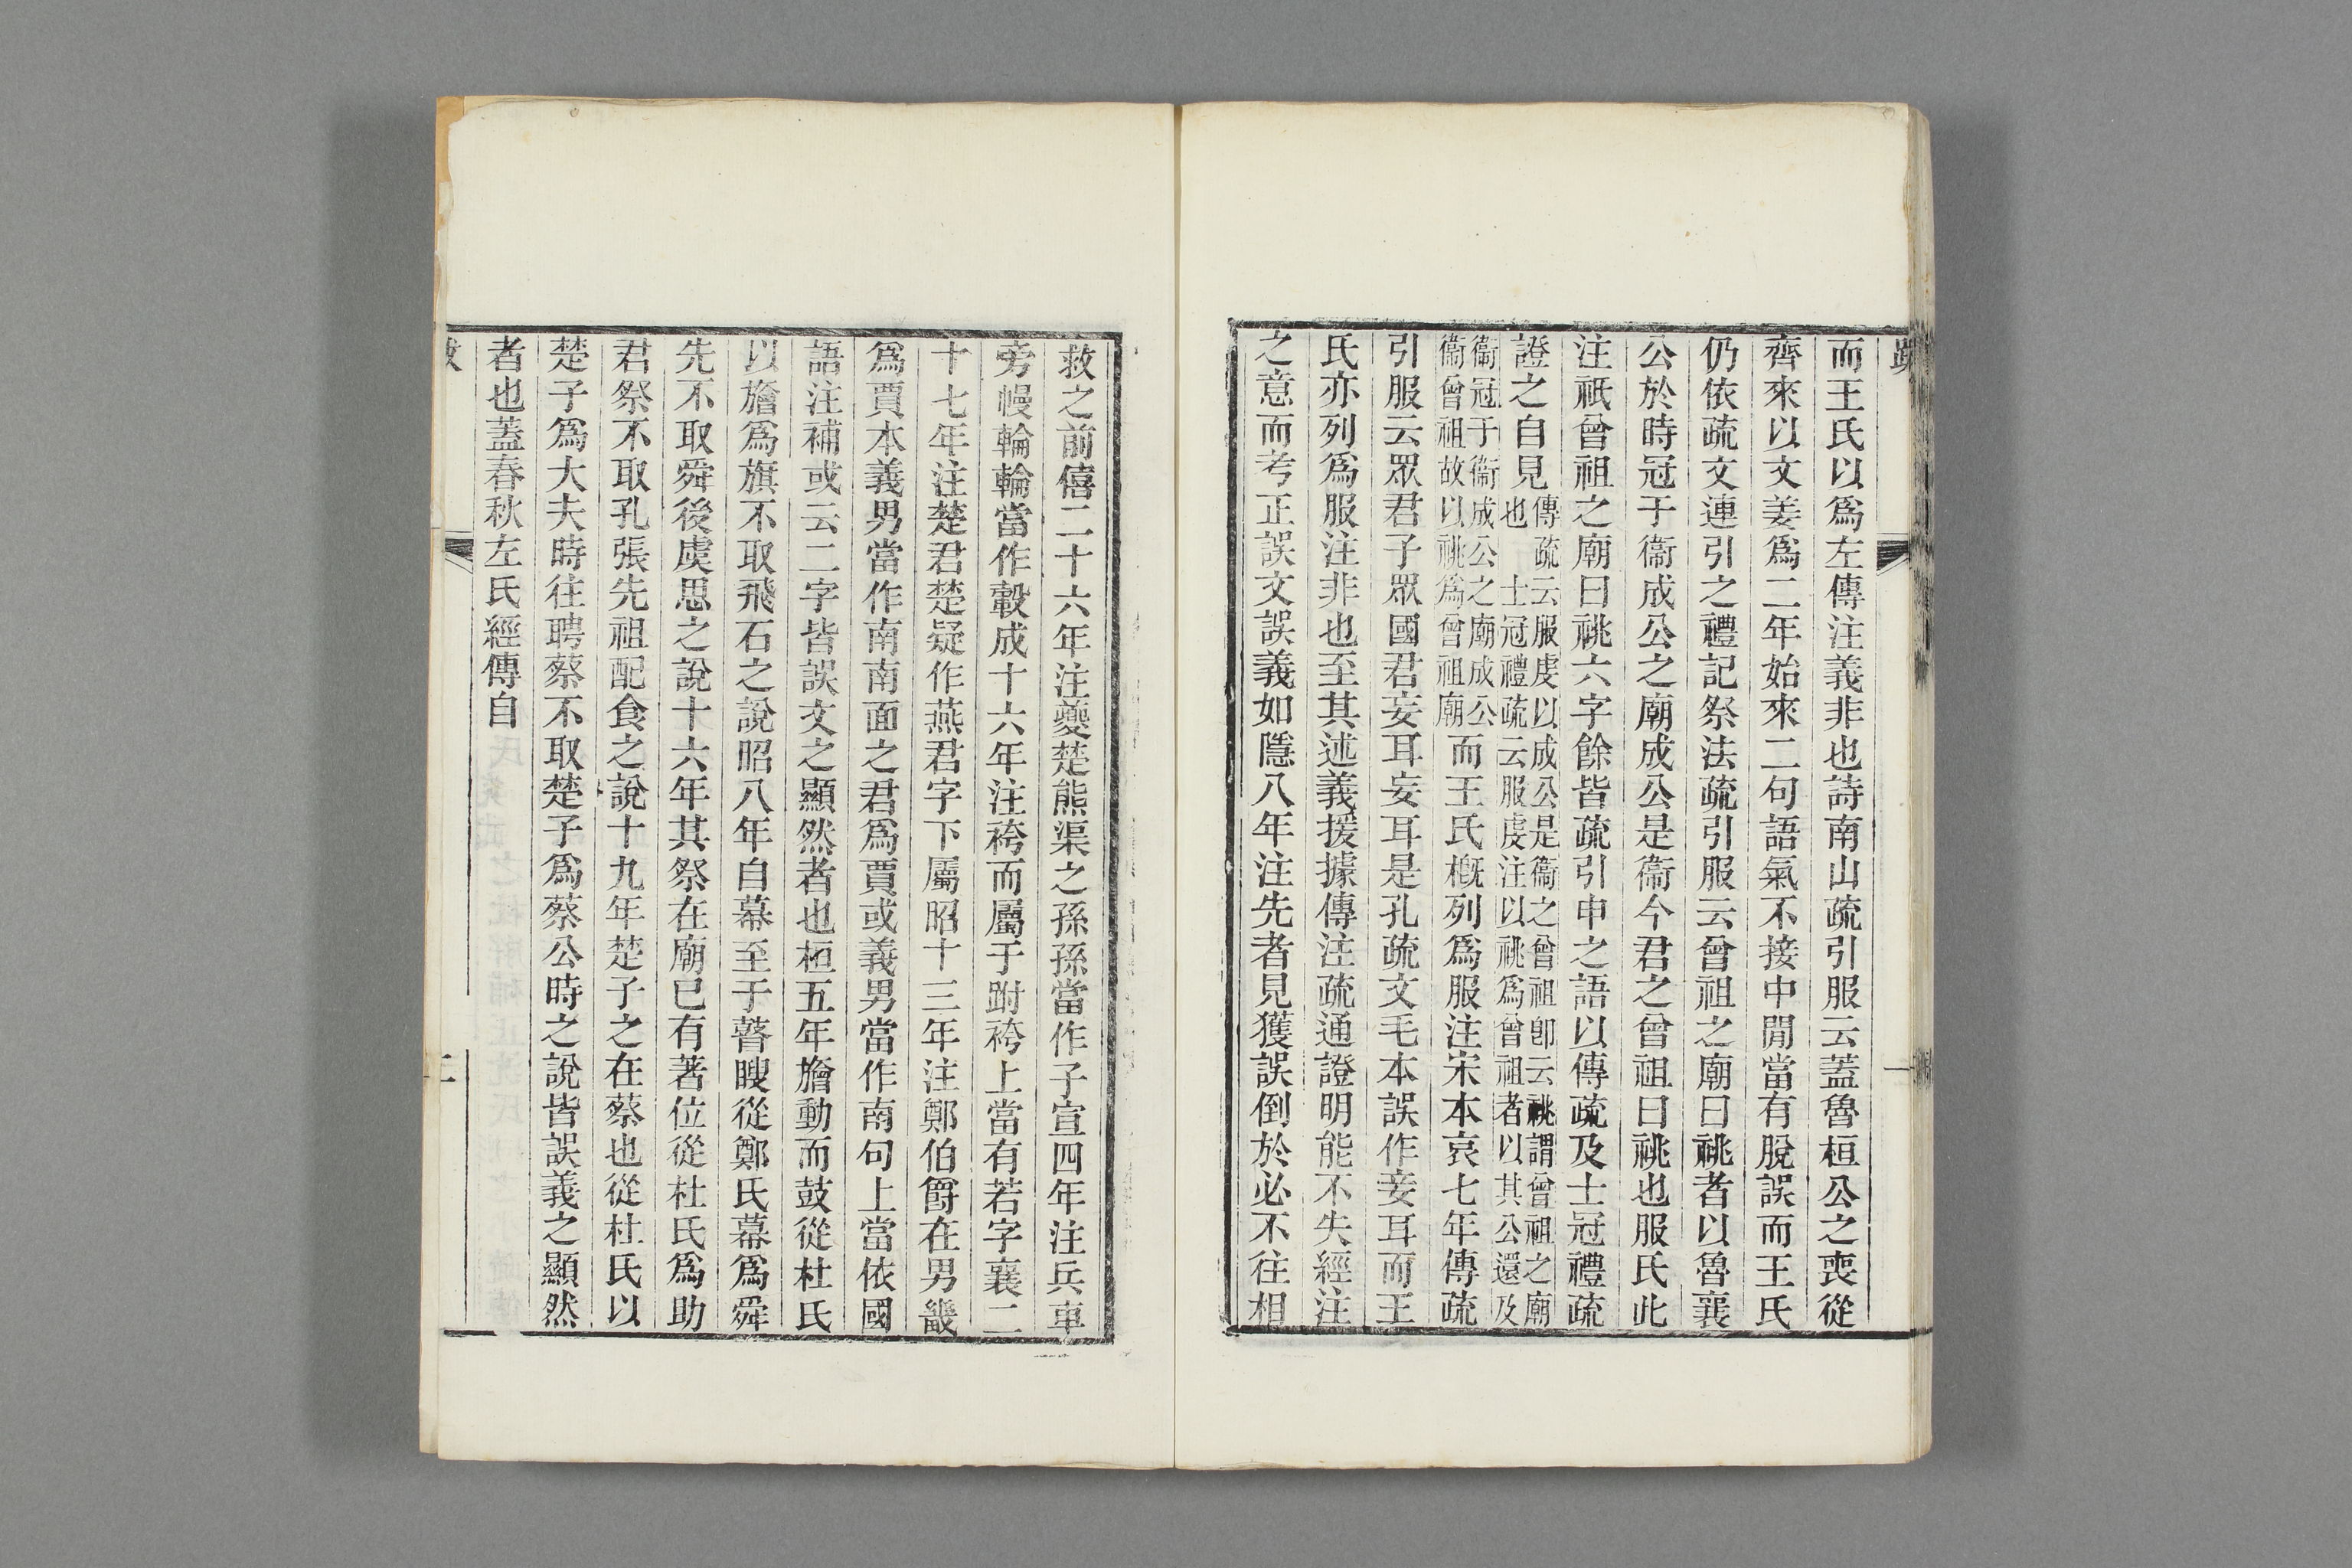 而王氏以爲左傳注義非也詩南山疏引服云蓋魯桓公之喪從
齊來以文姜爲二年始來二句語氣不接中閒當有脫誤而王氏
仍依疏文連引之禮記祭法疏引服云曾祖之廟曰祧者以魯襄
公於時冠于衞成公之廟成公是衞今君之曾祖曰祧也服氏此
注祇曾祖之廟曰祧六字餘皆疏引申之語以傳疏及士冠禮疏
證之自見
傳疏云服虔以成公是衞之曾祖卽云祧謂曾祖之廟
也士冠禮疏云服虔注以祧爲曾祖者以其公還及
衞冠于衞成公之廟成公
衞曾祖故以祧爲曾祖廟
而王氏槪列爲服注宋本哀七年傳疏
引服云眾君子眾國君妄耳妄耳是孔疏文毛本誤作妾耳而王
氏亦列爲服注非也至其述義援據傳注疏通證明能不失經注
之意而考正誤文誤義如隱八年注先者見獲誤倒於必不往相
救之前僖二十六年注夔楚熊渠之孫孫當作子宣四年注兵車
旁幔輪輪當作轂成十六年注袴而屬于跗袴上當有若字襄二
十七年注楚君楚疑作燕君字下屬昭十三年注鄭伯爵在男畿
爲賈本義男當作南南面之君爲賈或義男當作南句上當依國
語注補或云二字皆誤文之顯然者也桓五年旝動而鼓從杜氏
以旝爲旗不取飛石之說昭八年自幕至于瞽瞍從鄭氏幕爲舜
先不取舜後虞思之說十六年其祭在廟已有著位從杜氏爲助
君祭不取孔張先祖配食之說十九年楚子之在蔡也從杜氏以
楚子爲大夫時往聘蔡不取楚子爲蔡公時之說皆誤義之顯然
者也蓋春秋左氏經傳自
二